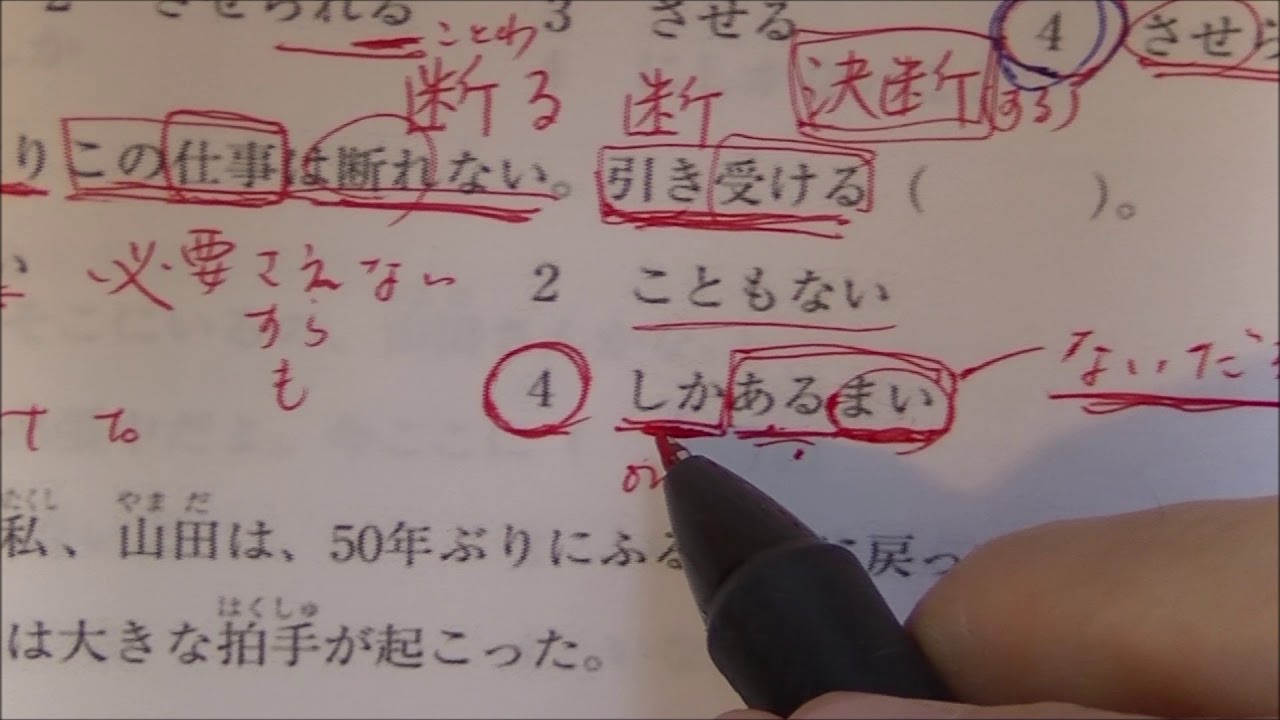 2 させられる 3 させる 4 させら
ことわ
断る 断 決断(する)
りこの仕事は断れない。引き受ける( )。
必要さえない 2 こともない
すら
も
4 しかあるまい ないだ
たくし やまだ
私、山田は、50年ぶりにふる に戻っ
はくしゅ
は大きな拍手が起こった。